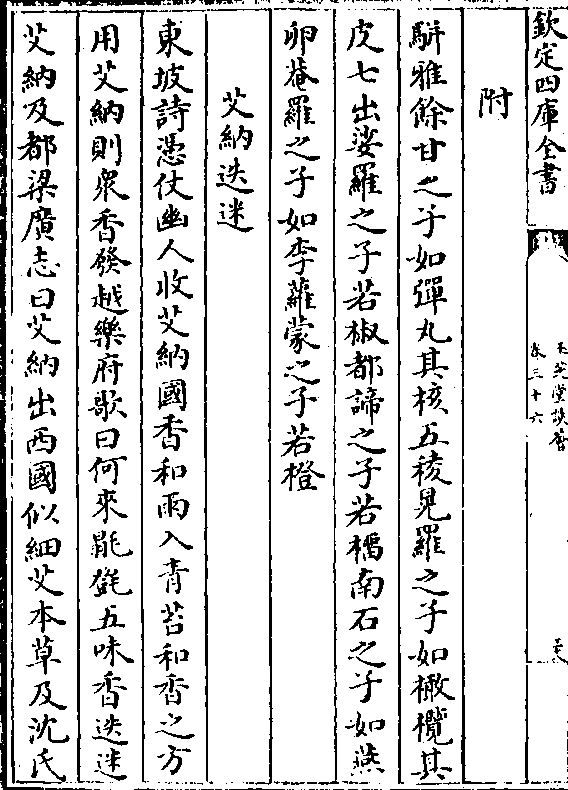 欽定四庫全書
玉芝堂談薈
卷三十六
附
駢雅餘甘之子如彈丸其核五稜晃羅之子如橄欖其
皮七出娑羅之子若椒都諦之子若橘南石之子如燕
卵菴羅之子如李蘿蒙之子若橙
艾納迷迷
東坡詩憑仗幽人收艾納國香和雨入青苔和香之方
用艾納則衆香發越樂府歌曰何來氍毹五味香迷迷
艾納及都梁廣志曰艾納出西國似細艾本草及沈氏